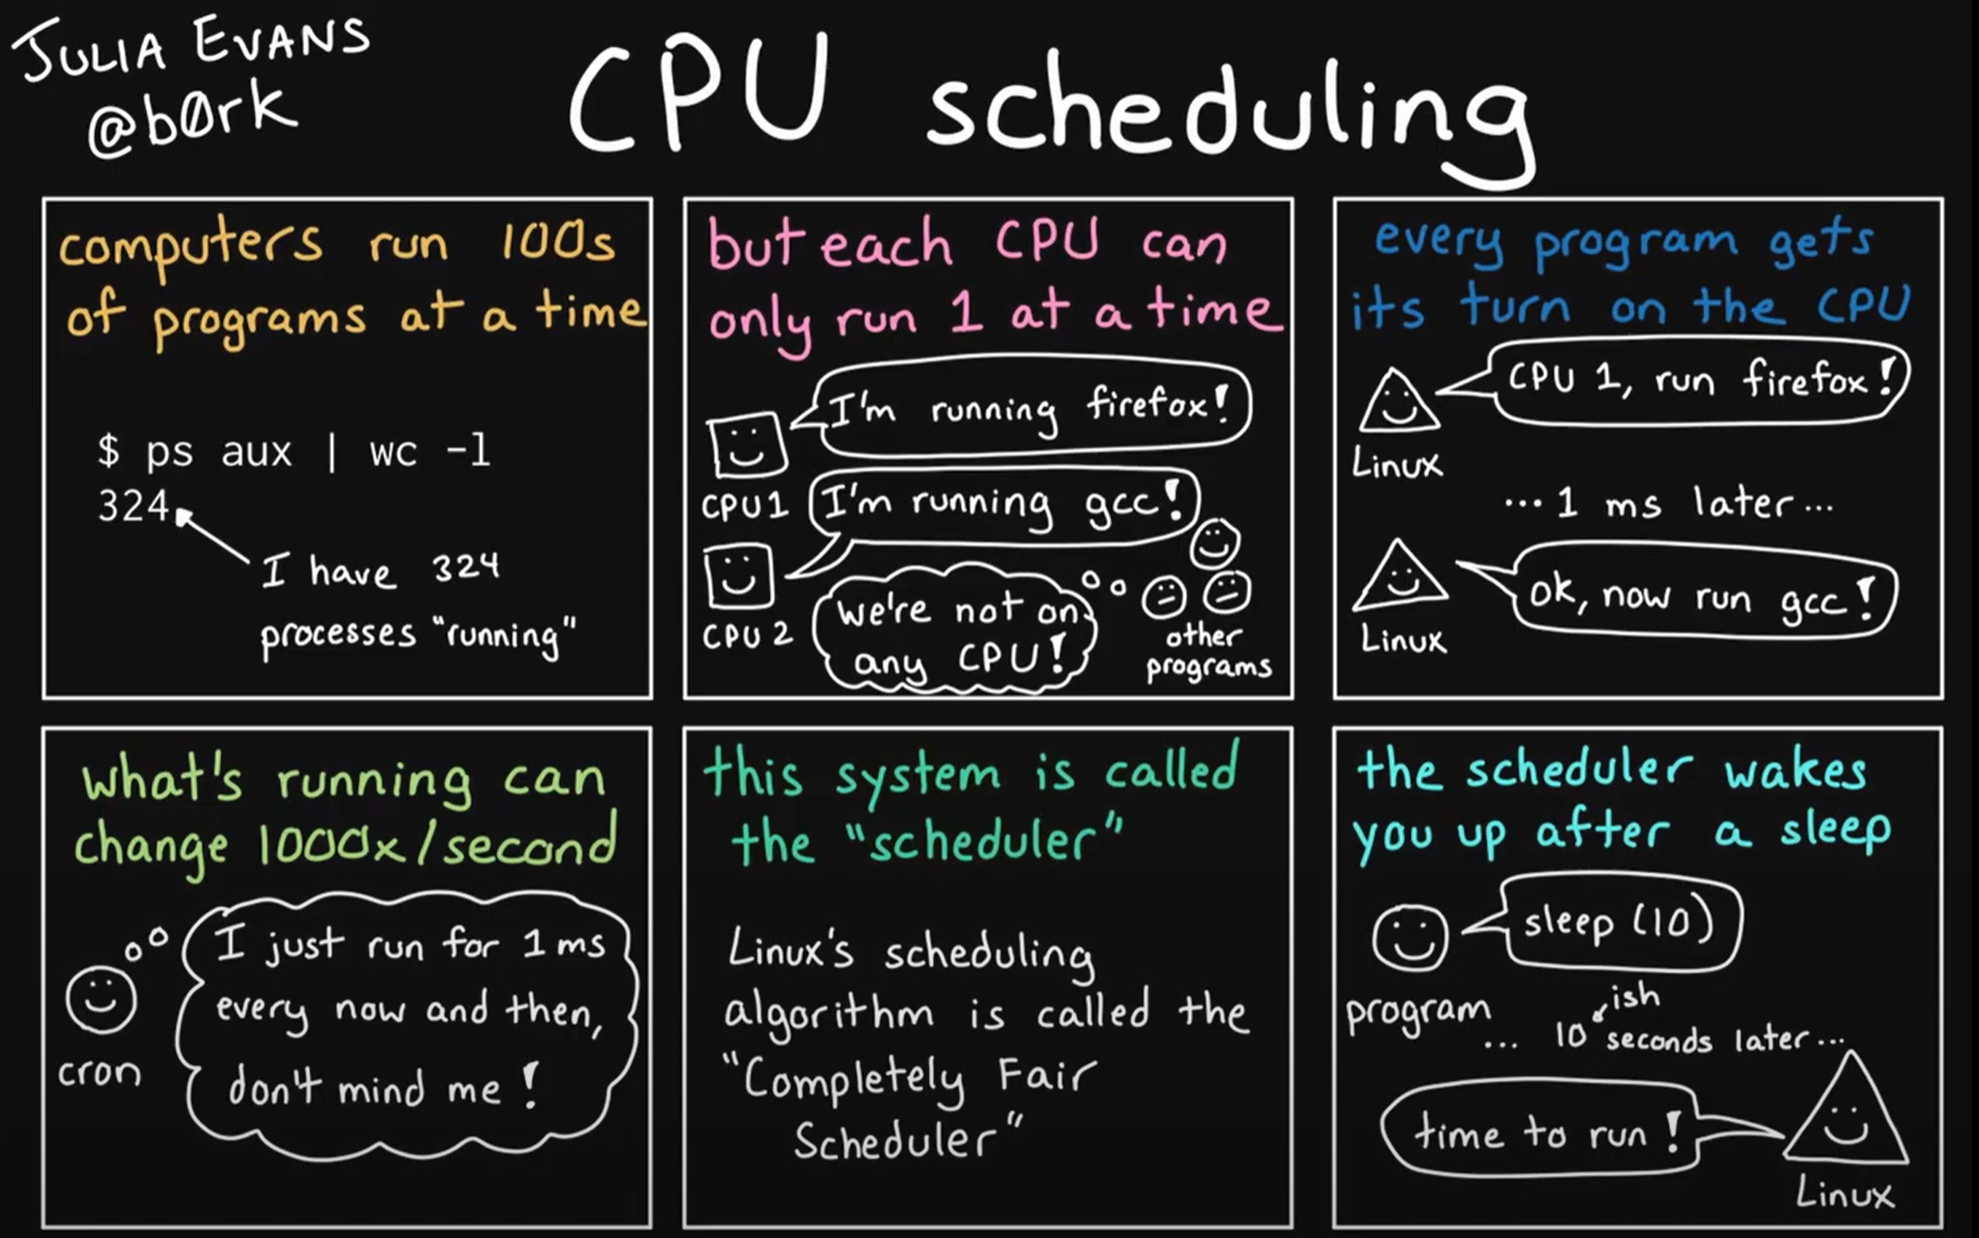 JULIA EVANS
@b0rk
CPU scheduling
computers run 100s
of programs at a time
$ ps aux | wc -l
324
I have 324
processes "running"
but each CPU can
only run 1 at a time
I'm running firefox!
CPU 1
I'm running gcc!
CPU 2
we're not on
any CPU!
other
programs
every program gets
its turn on the CPU
CPU 1, run firefox!
Linux
... 1 ms later ...
ok, now run gcc!
Linux
what's running can
change 1000x/second
I just run for 1 ms
every now and then,
don't mind me!
cron
this system is called
the "scheduler"
Linux's scheduling
algorithm is called the
"Completely Fair
Scheduler"
the scheduler wakes
you up after a sleep
sleep (10)
program
ish
... 10 seconds later ...
time to run!
Linux